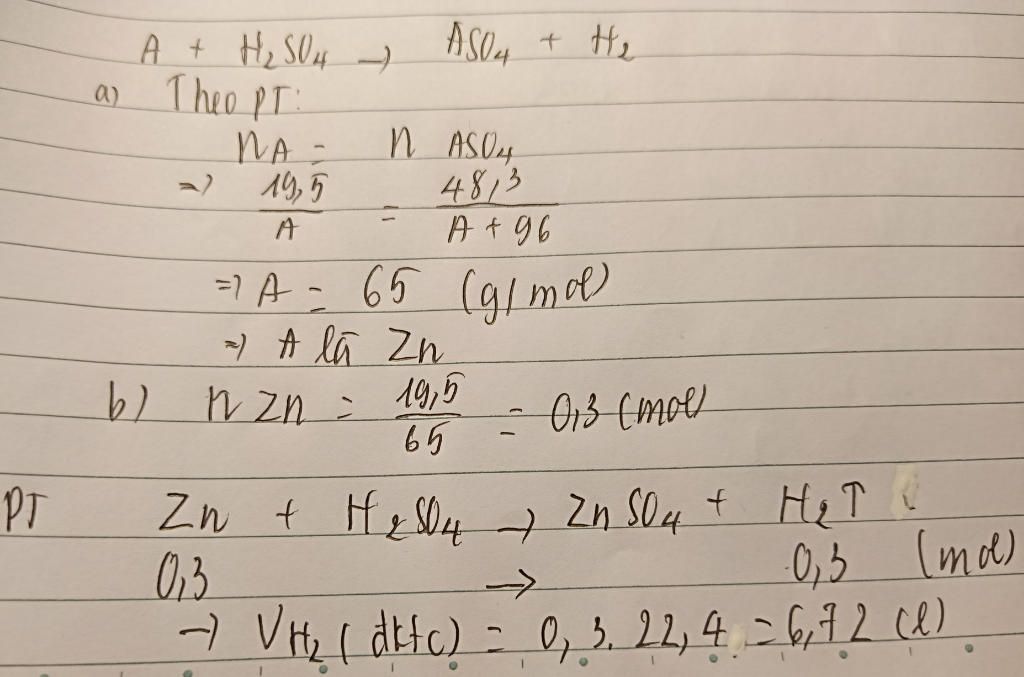 A + H₂SO₄ → ASO₄ + H₂
a) Theo PT:
nA = n ASO₄
=> 19,5/A = 48,3/(A + 96)
=> A = 65 (g/mol)
=> A là Zn
b) n Zn = 19,5/65 = 0,3 (mol)
PT Zn + H₂SO₄ → ZnSO₄ + H₂↑
0,3 → 0,3 (mol)
→ VH₂ (đktc) = 0,3.22,4 = 6,72 (l)